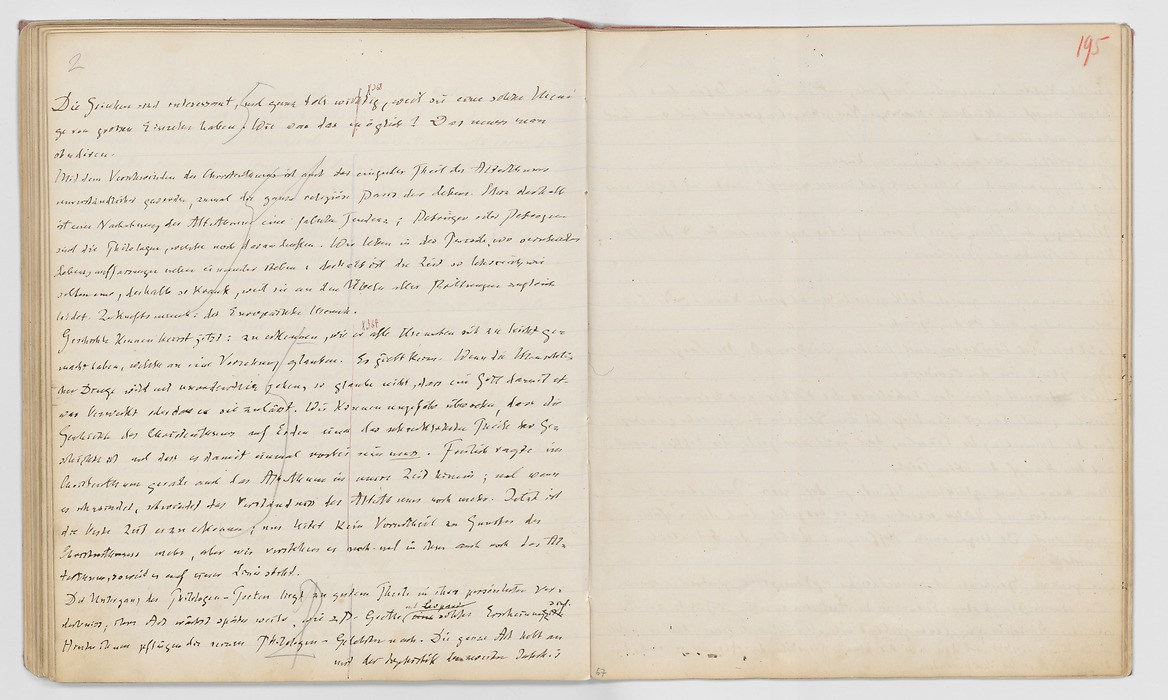 2
195
X 368
Die Griechen sind interessant, und ganz toll wichtig, weil sie eine solche Menge
ge von grossen Einzelnen haben. Wie war das möglich? Das muss man
studiren.
Mit dem Verschwinden des Christenthums ist auch das ein guter Theil des Alterthums
unverständlicher geworden, zumal die ganze religiöse Basis des Lebens. Schon deshalb
ist eine Nachahmung des Alterthums eine falsche Tendenz; Betrüger oder Betrogene
sind die Philologen, welche noch daran denken. Wir leben in der Periode, wo verschiedene
Lebensauffassungen neben einander stehen: deshalb ist die Zeit so lehrreich, wie
selten eine, deshalb so krank, weil sie an den Übeln aller Richtungen zugleich
leidet. Zukunftsmensch: der Europäische Mensch.
X 367
Geschichte kennen heisst jetzt: zu erkennen, wie es alle Menschen sich zu leicht ge-
macht haben, welche an eine Vorsehung glauben. Es giebt keine. Wenn die menschli-
chen Dinge wild und unordentlich gehen, so glaube nicht, dass ein Gott damit et-
was bezweckt oder dass er sie zulässt. Wir können ungefähr übersehen, dass die
Geschichte des Christenthums auf Erden einer der schrecklichsten Theile der Ge-
schichte ist und dass es damit einmal vorbei sein muss. Freilich ragte im
Christenthum gerade auch das Alterthum in unsre Zeit hinein; und wenn
es schwindet, schwindet das Verständniss des Alterthums noch mehr. Jetzt ist
die beste Zeit es zu erkennen; uns leitet kein Vorurtheil zu Gunsten des
Christenthums mehr, aber wir verstehen es noch und in ihm auch noch das Al-
terthum, soweit es auf einer Linie steht.
Der Untergang der Philologen-Poeten liegt zu gutem Theile in ihrer persönlichen Ver-
derbniss; ihre Art wächst später weiter, wie z. B. Goethe und Leopardi solche Erscheinungen sind.
Hinter ihnen pflügen die reinen Philologen-Gelehrten nach. Die ganze Art hebt an
mit der Sophistik des zweiten Jahrh.
67